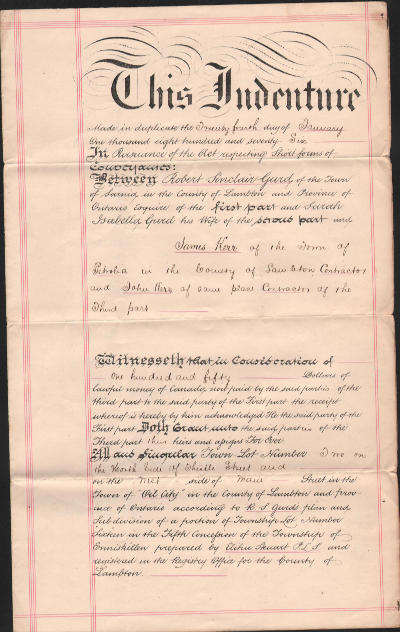 This Indenture
Made in duplicate the Twenty fourth day of January
One thousand eight hundred and seventy Six
In Pursuance of the Act respecting Short forms of
Conveyances:
Between Robert Sinclair Gurd of the Town
of Sarnia in the County of Lambton and Province of
Ontario Esquire of the first part and Sarah
Isabella Gurd his Wife of the second part and
James Kerr of the Town of
Petrolia in the County of Lambton Contractor
and John Kerr of same place Contractor of the
Third part
Witnesseth that in Consideration of
One hundred and fifty Dollars of
Lawful money of Canada now paid by the said parties of the
third part to the said party of the First part the receipt
whereof is hereby by him acknowledged He the said party of the
First part Doth Grant unto the said parties of the
Third part their heirs and assigns For Ever
All and Singular Town Lot Number Two on
the North Side of Street and
on the West side of Main Street in the
Town of "Oil City" in the County of Lambton and prov-
ince of Ontario according to R. S. Gurds plan and
Sub division of a portion of Township Lot Number
Sixteen in the Fifth Concession of the Township of
Enniskillen prepared by P.L.S. and
registered in the Registry Office for the County of
Lambton.